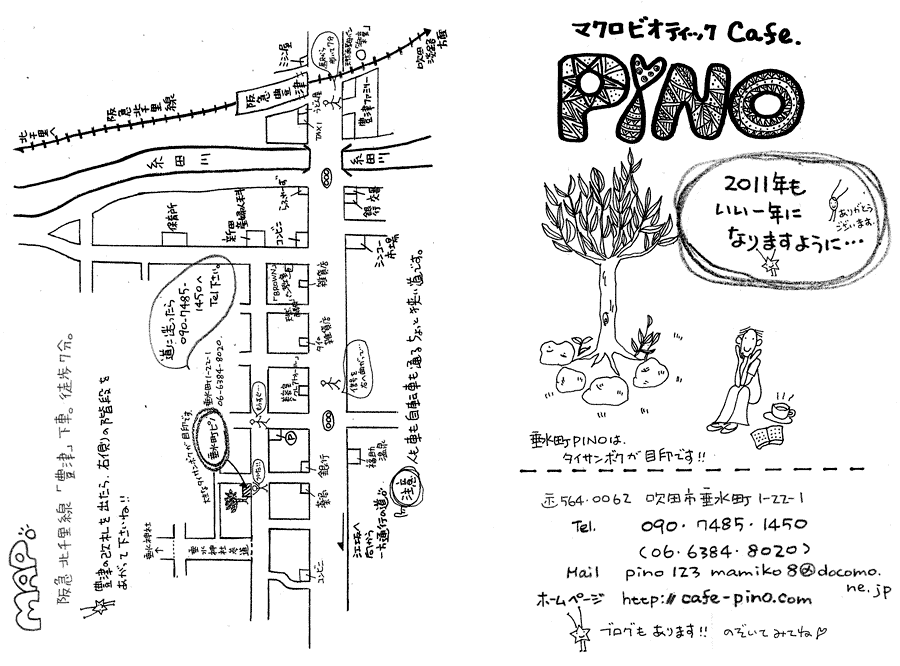 マクロビオティック Cafe.
PiNO
2011年も
いい一年に
なりますように…
ありがとう
ございます
垂水町PINOは、
タイサンボクが目印です!!
〒564-0062 吹田市垂水町1-22-1
Tel. 090・7485・1450
(06・6384・8020)
Mail pino123mamiko8@docomo.
ne.jp
ホームページ http://cafe-pino.com
ブログもあります!! のぞいてみてね♡
MAP
阪急 北千里線「豊津」下車。徒歩7分。
豊津の改札を出たら、右側の階段を
あがって下さいね!!
北千里へ
阪急
北千里線
阪急豊津
ミシン屋
吹田
淡路
TAXI
豊津ファミリー
糸田川
糸田川
保育所
コンビニ
銀行
雑貨店
道に迷ったら
090-7485-
1450へ
Tel下さい。
垂水町1-22-1
06-6384-8020
垂水町ピノ
美容室
P
銀行
薬局
コンビニ
温泉
垂水神社
垂水神社参道
江坂へ
一方通行の道
注意
人も車も自転車も通るちょっと狭い道です。